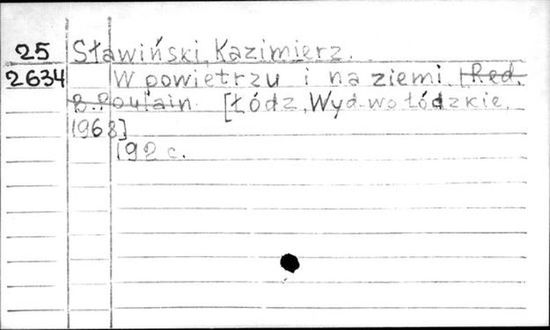 25 Sławiński, Kazimierz.
2634 W powietrzu i na ziemi. [Red.
B. Poulain. [Łódz, Wyd-wo łódzkie,
1968]
192 c.